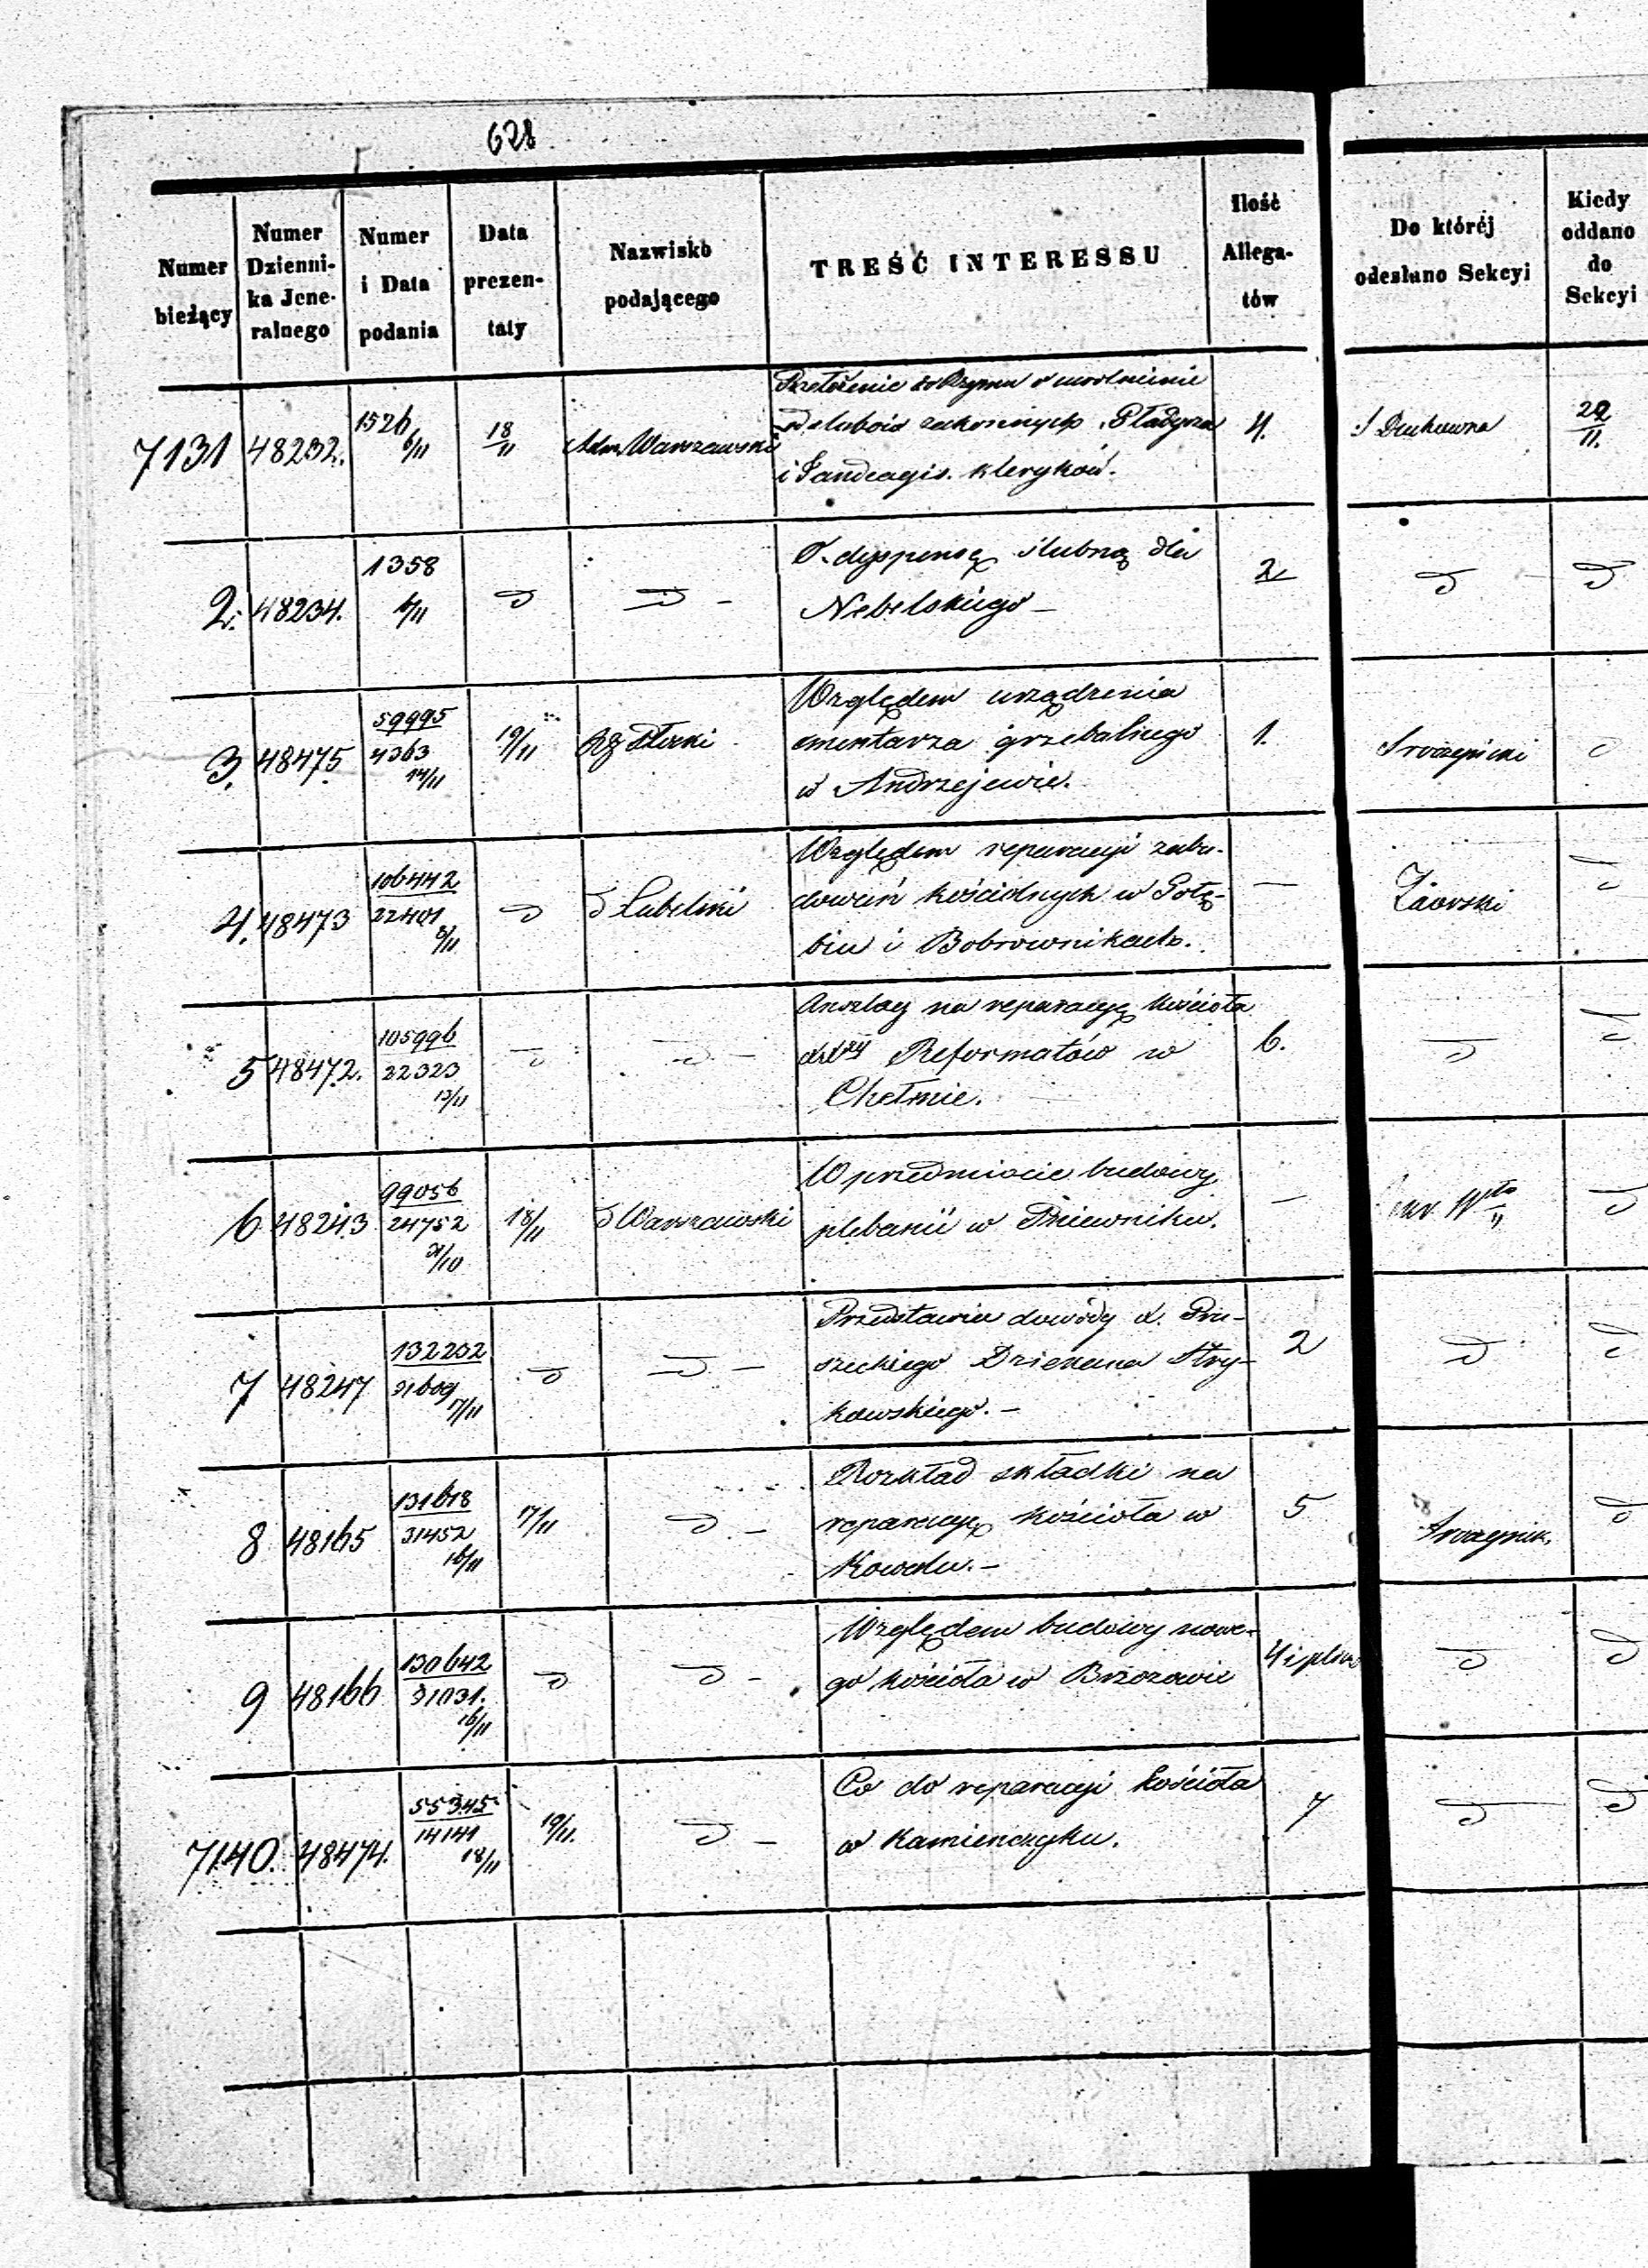 628
Numer bieżący
Numer Dzienni-ka Jene-ralnego
Numer i Data podania
Data prezen-taty
Nazwisko podającego
TREŚĆ INTERESSU
Ilość Allega-tów
Do któréj odesłano Sekcyi
Kiedy oddano do Sekcyi
7131 48232. 1526 6/11 18/11 Adm. Warszawski 4. 22/11.
do Rzymu o uwolnienie
od ślubów zakonnych
i kleryków.
2. 48234. 1358 6/11 2
O dyspensę ślubną dla
Nebelskiego –
3. 48475 59995 4363 14/11 19/11 1.
Względem urządzenia
cmentarza grzebalnego
w Andrzejewie.
4. 48473 106442 22401 8/11 Lubelski — Zaorski
Względem reperacyi zabu-
dowań kościelnych w Gołę-
biu i Bobrownikach.
5 48472. 105996 22323 13/11 6.
Anszlag na reparacyę kościoła
Reformatów w
Chełmie.
6 48243 99056 24752 31/10 18/11 Warszawski —
W przedmiocie budowy
plebanii w Pniewniku.
7 48247 132232 31609 17/11 2
Przedstawia dowody X. Pru-
szeckiego Dziekana Stry-
kowskiego. –
8 48165 131618 31452 16/11 17/11 5
Rozkład składki na
reparacyę kościoła w
Kowalu. –
9 48166 130642 31031. 16/11 4 i plan
Względem budowy nowe-
go kościoła w Brzozowie
7140. 48474. 55345 14141 18/11 19/11. 7
Co do reparacyi kościoła
w Kamieńczyku.